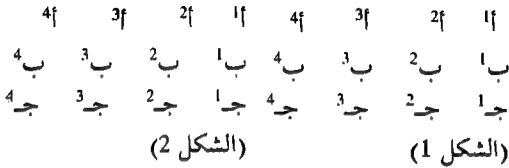 أ1 أ2 أ3 أ4 أ1 أ2 أ3 أ4
ب1 ب2 ب3 ب4 ب1 ب2 ب3 ب4
جـ1 جـ2 جـ3 جـ4 جـ1 جـ2 جـ3 جـ4
(الشكل 1) (الشكل 2)